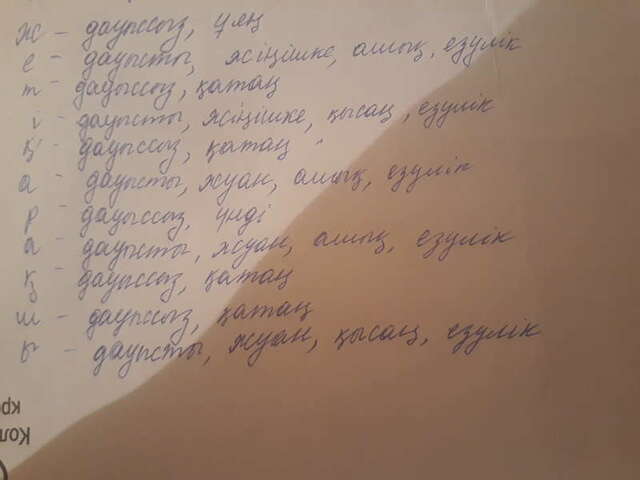 Ж – дауыссыз, ұяң
е – дауысты, жіңішке, ашық, езулік
т – дауыссыз, қатаң
і – дауысты, жіңішке, қысаң, езулік
қ – дауыссыз, қатаң
а – дауысты, жуан, ашық, езулік
р – дауыссыз, үнді
а – дауысты, жуан, ашық, езулік
қ – дауыссыз, қатаң
ш – дауыссыз, қатаң
ы – дауысты, жуан, қысаң, езулік
Кол
кр